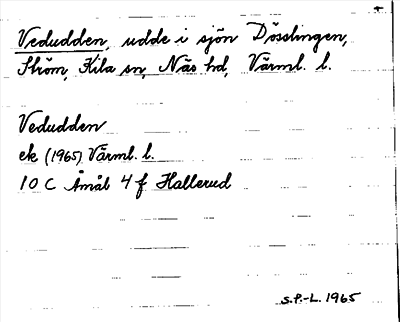 Vedudden, udde i sjön Dösslingen,
Ström, Kila sn, Näs hd, Värml. l.
Vedudden
ek (1965) Värml. l.
10 C Åmål 4 f Hallerud
S.P.-L. 1965